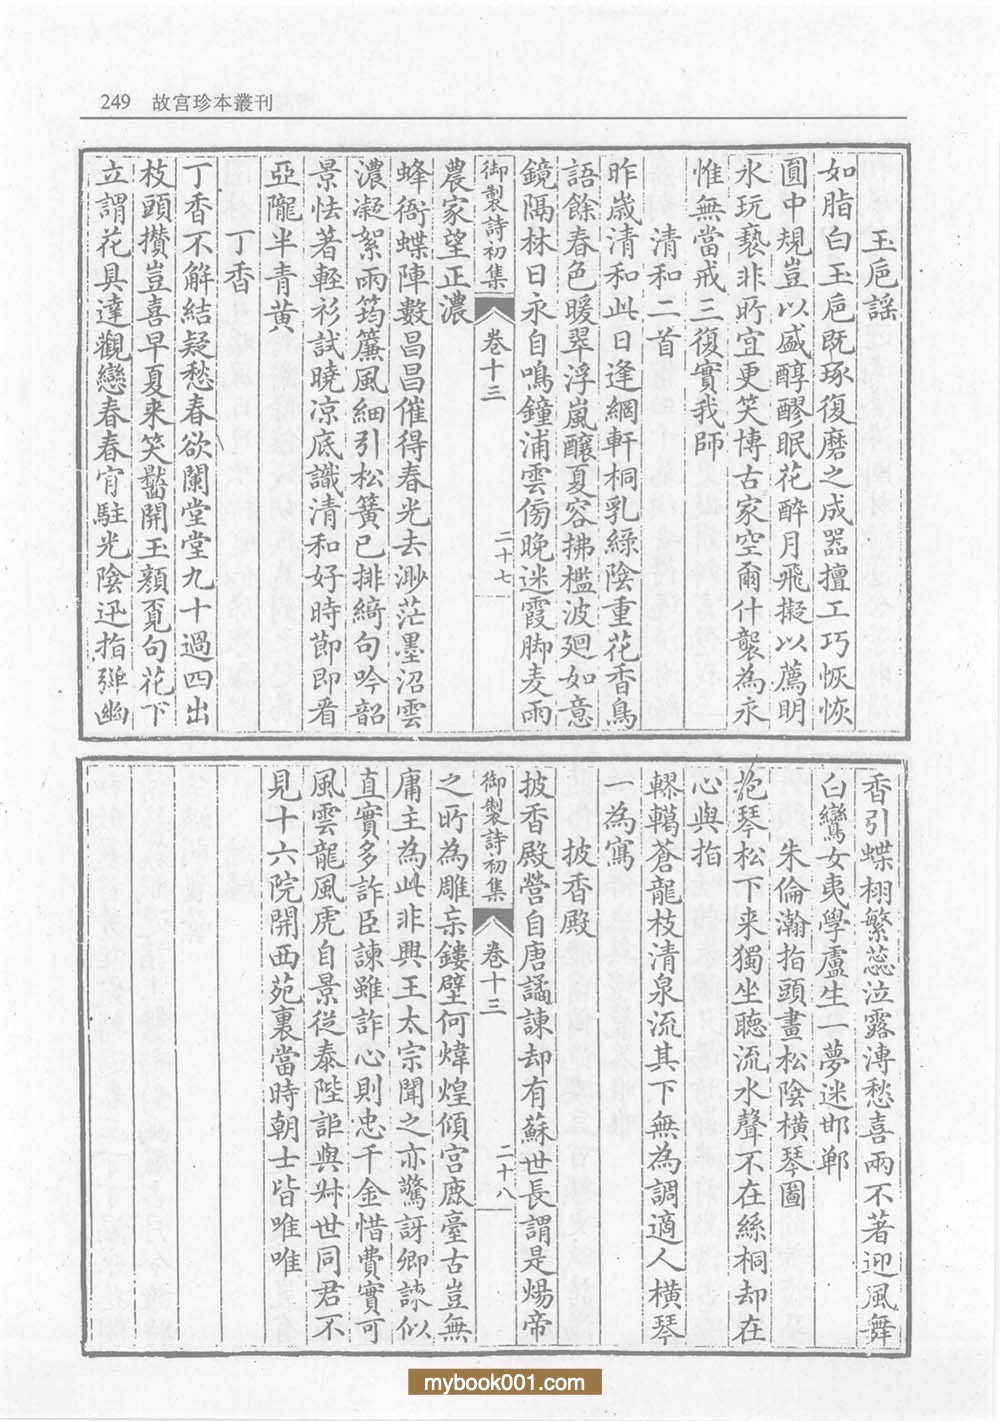 249 故宫珍本叢刊
玉巵謡
如脂白玉巵既琢復磨之成器擅工巧恢恢
圓中規豈以盛醇醪眠花醉月飛擬以薦明
水玩褻非所宜更笑博古家空爾什襲為永
惟無當戒三復實我師
清和二首
昨歲清和此日逢網軒桐乳綠陰重花香鳥
語餘春色暖翠浮嵐釀夏容拂檻波廻如意
鏡隔林日永自鳴鐘浦雲傍晚迷霞脚麦雨
御製詩初集 卷十三 二十七
農家望正濃
蜂衙蝶陣數昌昌催得春光去渺茫墨沼雲
濃凝絮雨筠簾風細引松簧已排綺句吟韶
景怯著輕衫試曉凉底識清和好時節即看
亞隴半青黄
丁香
丁香不解結疑愁春欲闌堂堂九十過四出
枝頭攢豈喜早夏来笑豔開玉顔覓句花下
立謂花具達觀戀春春肎駐光陰迅指彈幽
香引蝶栩繁蕊泣露漙愁喜兩不著迎風舞
白鸞女夷學盧生一夢迷邯鄲
朱倫瀚指頭畫松陰横琴圖
抱琴松下来獨坐聽流水聲不在絲桐却在
心與指
轇轕蒼龍枝清泉流其下無為調適人横琴
為寫
披香殿
披香殿營自唐譎諫却有蘇世長謂是煬帝
御製詩初集 卷十三 二十八
之所為雕宲鏤壁何煒煌傾宫鹿臺古豈無
庸主為此非興王太宗聞之亦驚訝卿諌似
直實多詐臣諫雖詐心則忠千金惜費實可
風雲龍風虎自景從泰陛詎與叔世同君不
見十六院開西苑裏當時朝士皆唯唯
mybook001.com